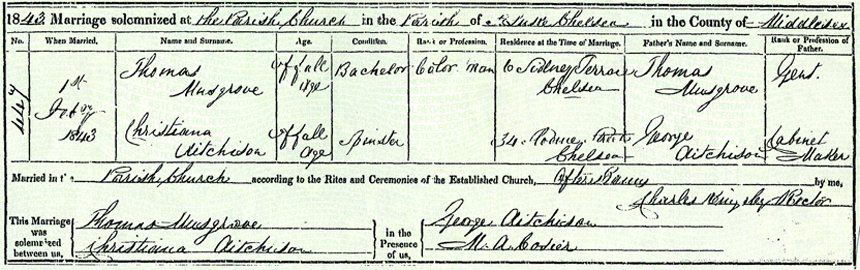 1843 Marriage solemnized at the Parish Church in the Parish of St Luke Chelsea in the County of Middlesex
No. When Married. Name and Surname. Age. Condition. Rank or Profession. Residence at the Time of Marriage. Father's Name and Surname. Rank or Profession of Father.
447 1st Feby 1843 Thomas Musgrove Of full age Bachelor Color man 6 Sidney Terrace Chelsea Thomas Musgrove Gent.
Christiana Aitchison Of full Age Spinster 34 Chelsea George Aitchison Cabinet Maker
Married in the Parish Church according to the Rites and Ceremonies of the Established Church, after Banns by me,
Charles Kingsley Rector
This Marriage was solemnized between us,
Thomas Musgrove
Christiana Aitchison
in the Presence of us,
George Aitchison
M. A. Cosier